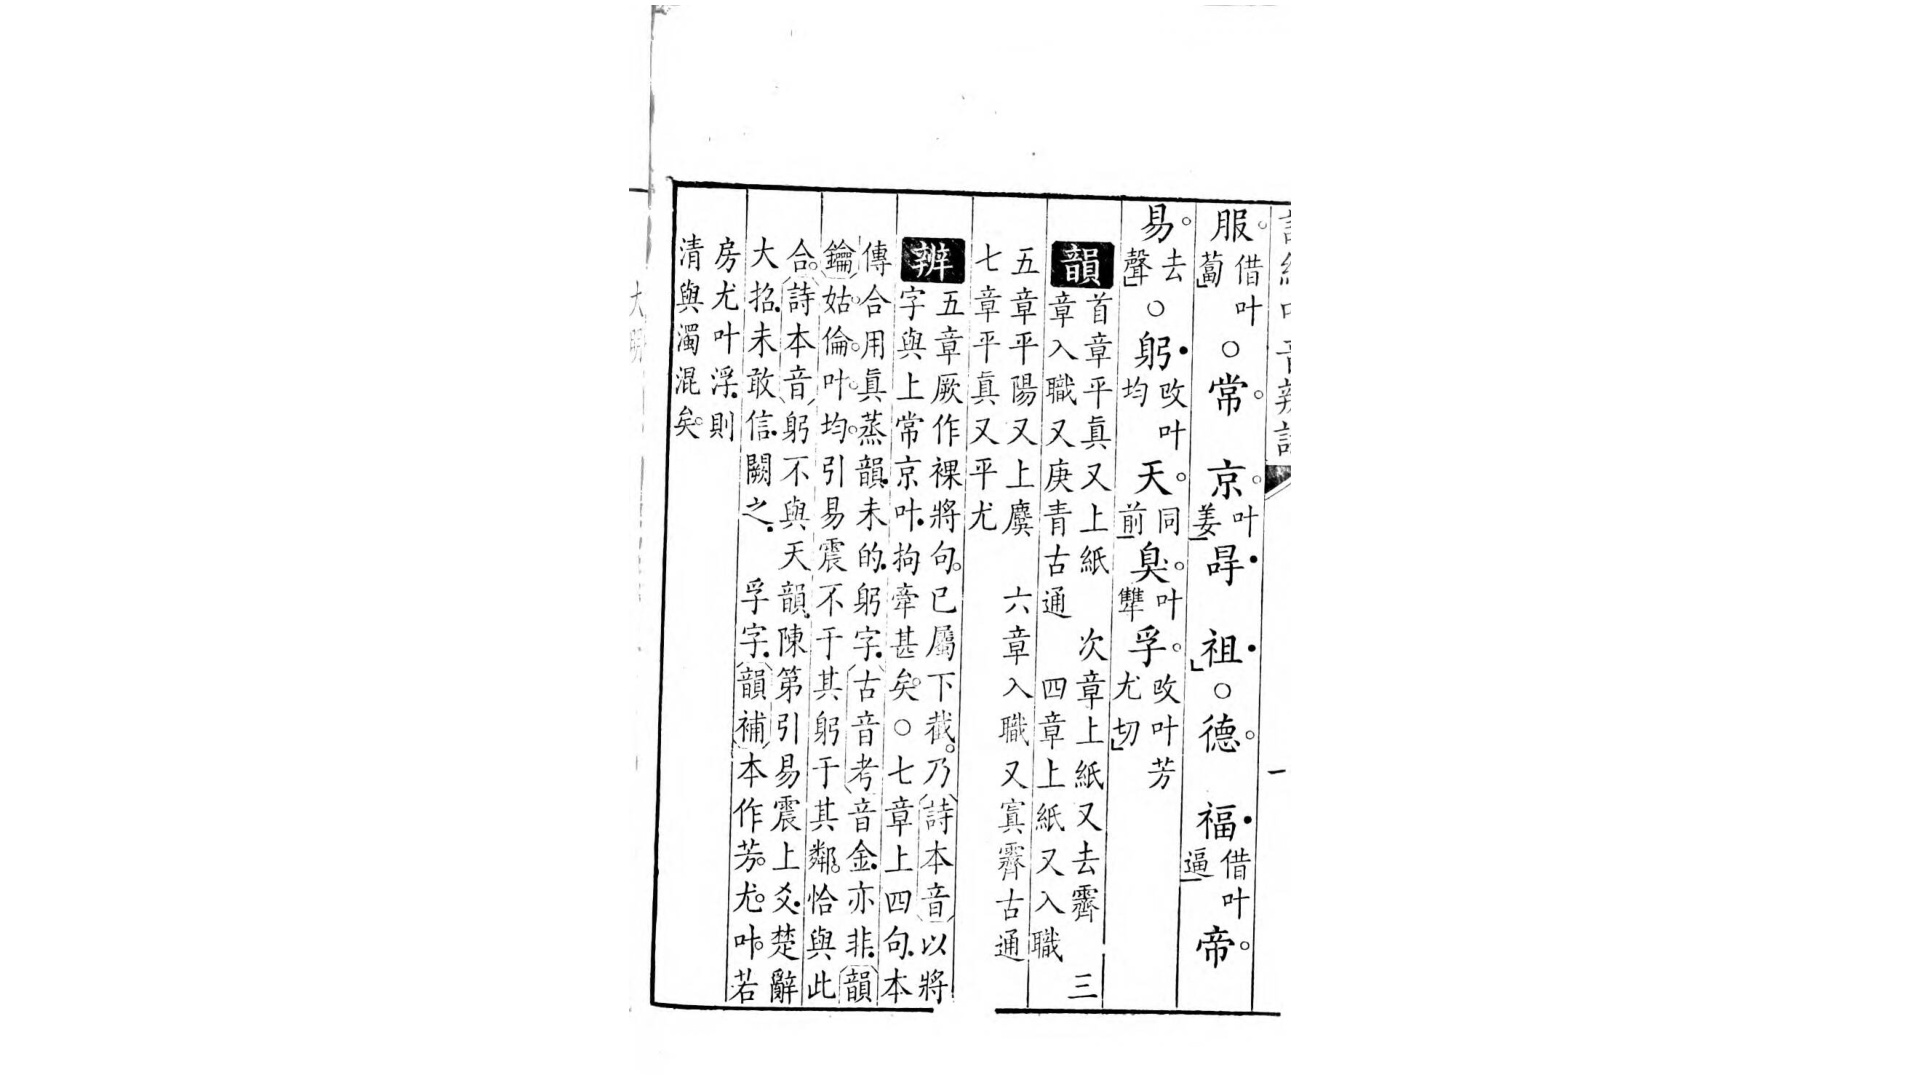 服。借叶蔔○常。京。叶姜冔祖○德。福借叶逼帝。
易。去聲○躬攺叶均天。同前臭。叶讐孚。攺叶芳尤切
韻
首章平眞又上紙　次章上紙又去霽　三
章入職又庚青古通　四章上紙又入職
五章平陽又上麌　六章入職又寘霽古通
七章平眞又平尤
辨
五章厥作祼將句。已屬下截。乃詩本音以將
字與上常京叶。拘牽甚矣。○七章上四句。本
傳合用眞蒸韻。未的。躬字。古音考音金。亦非。韻
鑰姑倫。叶。均。引易震不于其躬于其鄰。恰與此
合。詩本音躬不與天韻。陳第引易震上爻。楚辭
大招。未敢信。闕之。　孚字。韻補本作芳。尤。叶。若
房尤叶浮。則
清與濁混矣。
大明